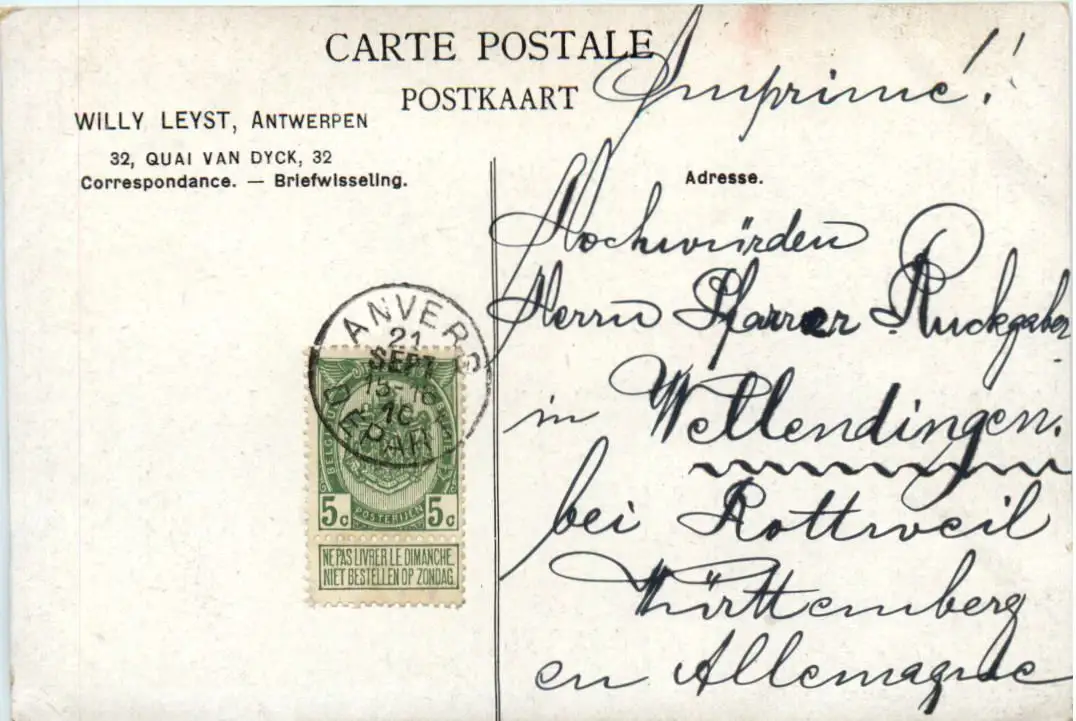 CARTE POSTALE
POSTKAART
Imprimé!
WILLY LEYST, ANTWERPEN
32, QUAI VAN DYCK, 32
Correspondance. — Briefwisseling.
Adresse.
Hochwürden
Herrn Pfarrer Ruckgaber
in Wellendingen.
bei Rottweil
Württemberg
en Allemagne
ANVERS
21
SEPT
15-16
10
DEPART
5c 5c
POSTERIJEN
NE PAS LIVRER LE DIMANCHE
NIET BESTELLEN OP ZONDAG